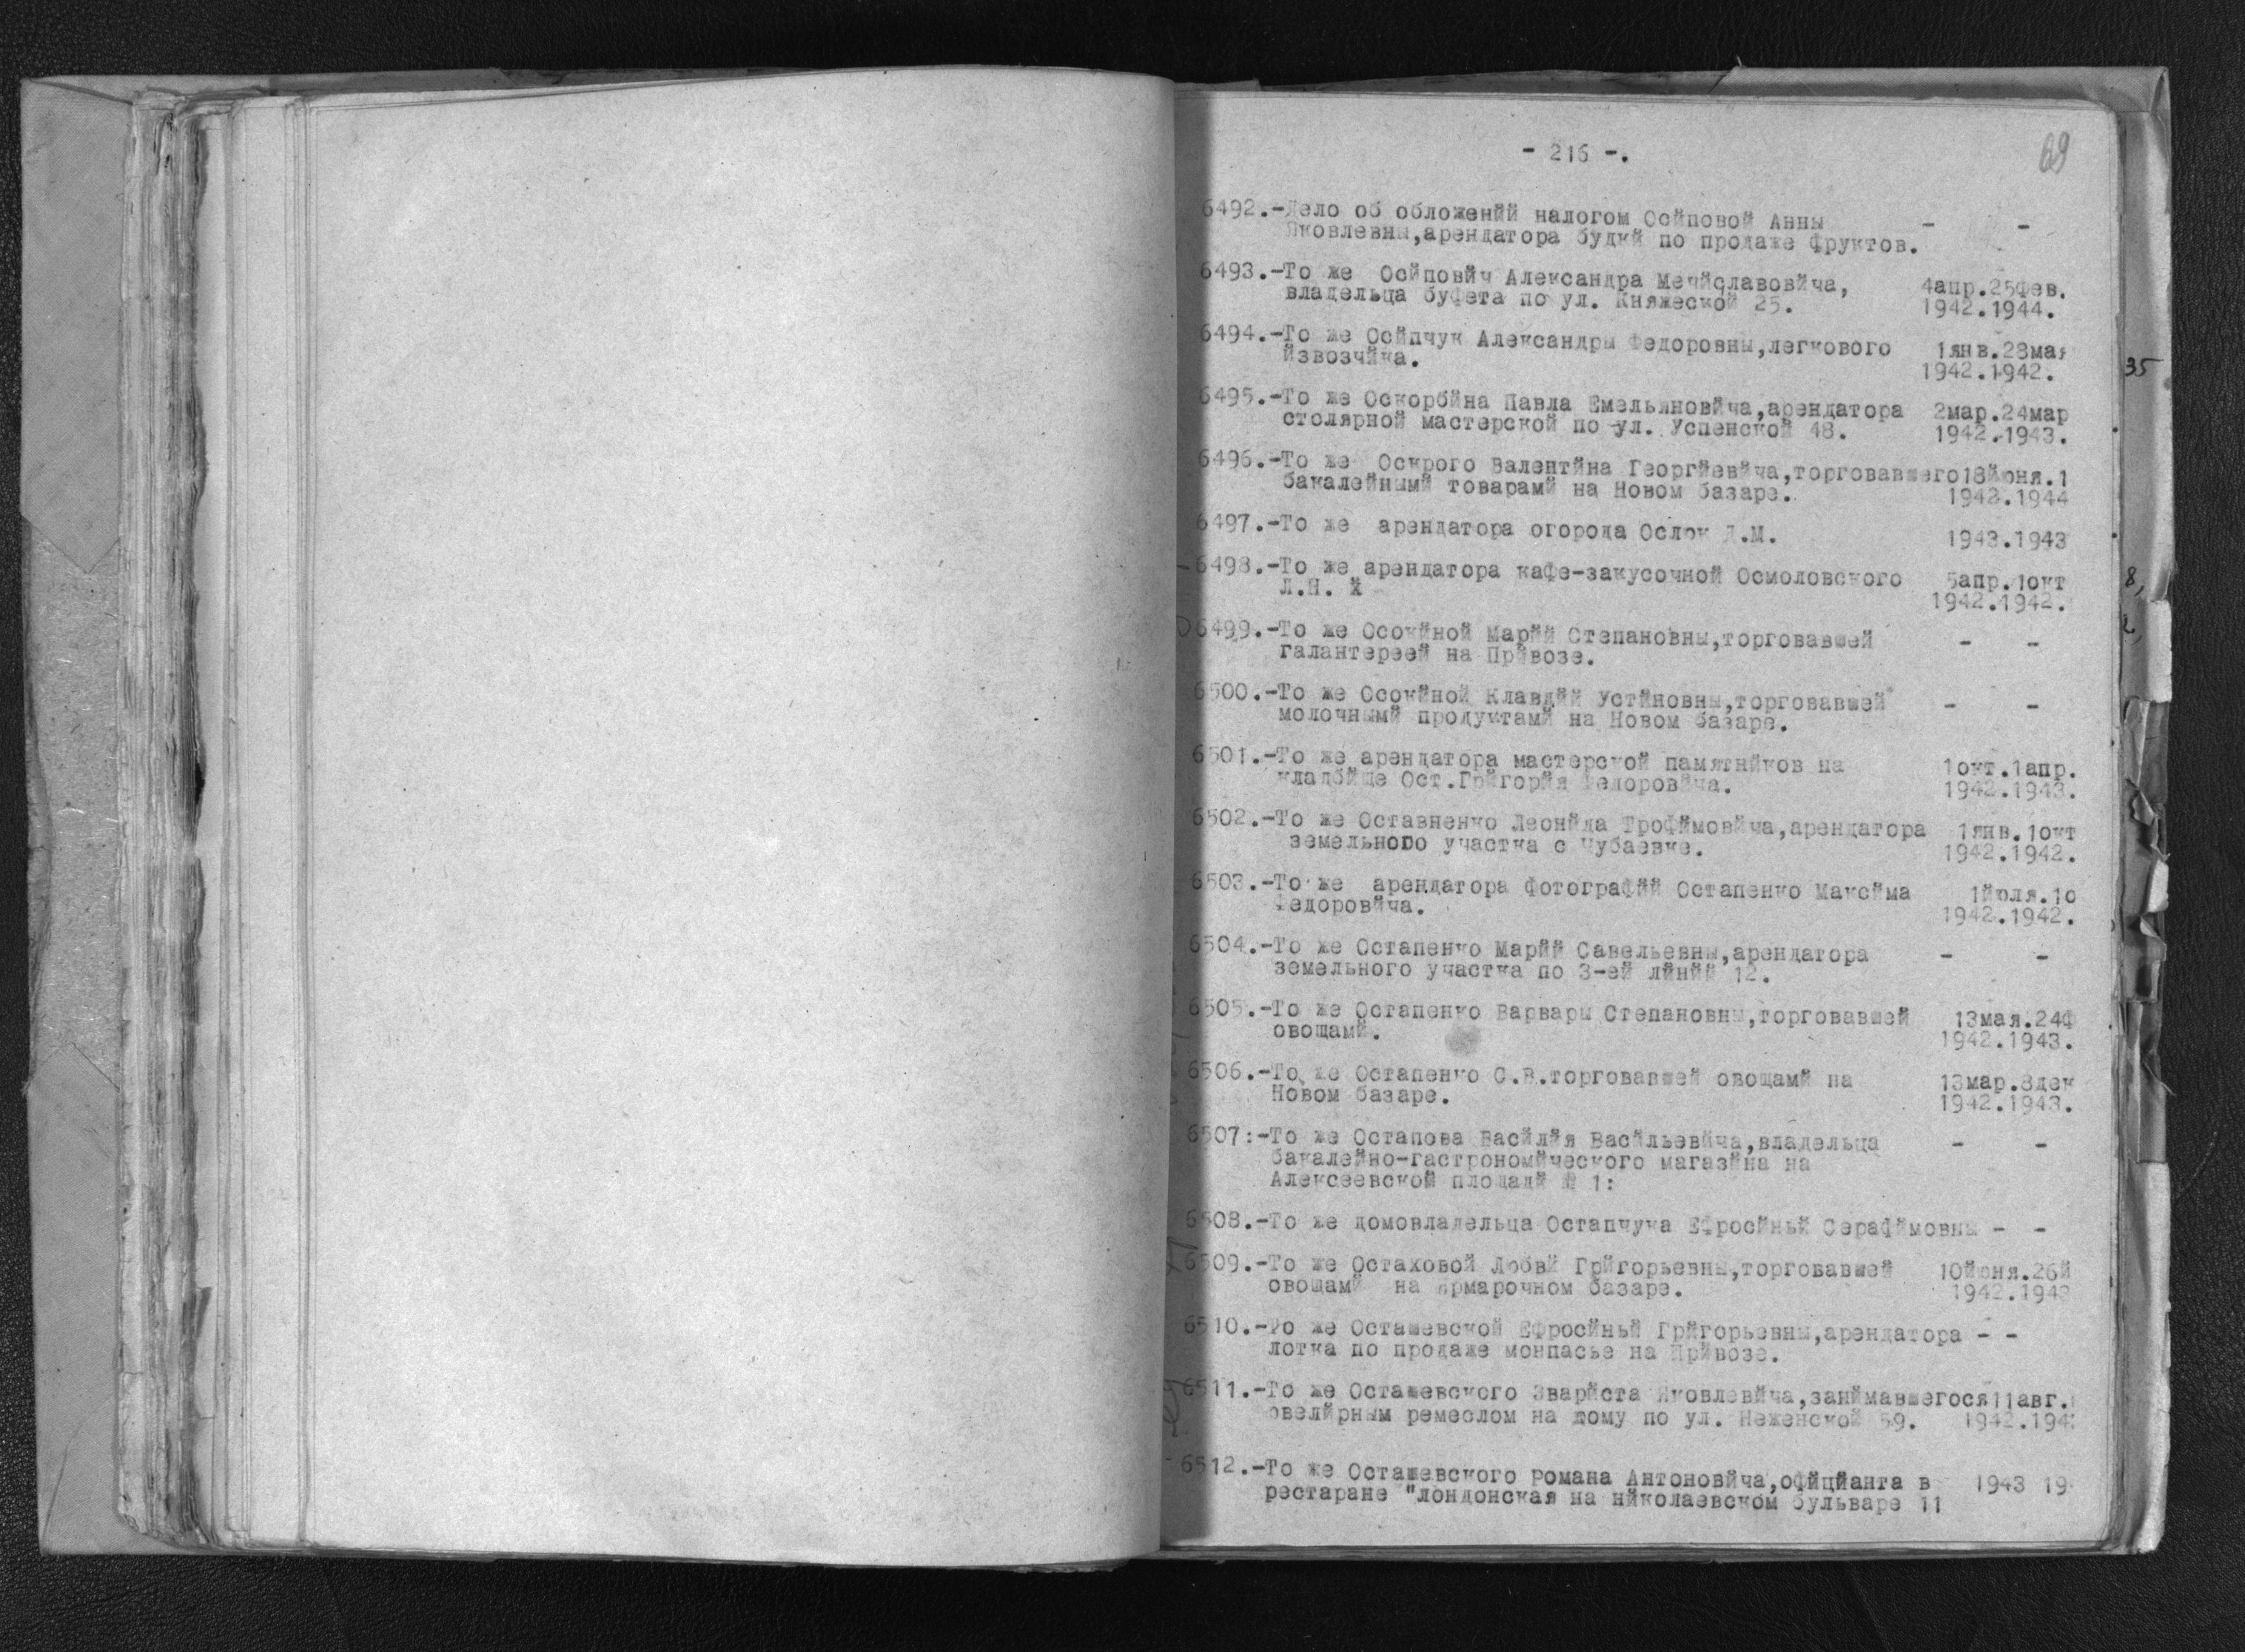 - 216 -.
69
6492.-Дело об обложений налогом Осйповой Анны - -
Яковлевны,арендатора будкй по продаже фруктов.
6493.-То же Осйповйч Александра Мечйславовйча, 4апр.25фев.
владельца буфета по ул. Княжеской 25. 1942.1944.
6494.-То же Осйпчук Александры Федоровны,легкового 1янв.28мая
йзвозчйка. 1942.1942.
35
6495.-То же Оскорбйна Павла Емельяновйча,арендатора 2мар.24мар
столярной мастерской по ул. Успенской 48. 1942.1943.
6496.-То же Оскрого Валентйна Георгйевйча,торговавшего18йюня.1
бакалейнымй товарамй на Новом базаре. 1942.1944
6497.-То же арендатора огорода Ослок Д.М. 1943.1943
6498.-То же арендатора кафе-закусочной Осмоловского 5апр.1окт
Л.Н. 1942.1942.
8,
6499.-То же Осокйной Марйй Степановны,торговавшей - -
галантереей на Прйвозе.
6500.-То же Осокйной Клавдйй Устйновны,торговавшей - -
молочнымй продуктамй на Новом базаре.
6501.-То же арендатора мастерской памятнйков на 1окт.1апр.
кладбйще Ост.Грйгорйя Федоровйча. 1942.1943.
6502.-То же Оставненко Леонйда Трофймовйча,арендатора 1янв.1окт
земельного участка с Чубаевке. 1942.1942.
6503.-То же арендатора фотографйй Остапенко Максйма 1йюля.1о
Федоровйча. 1942.1942.
6504.-То же Остапенко Марйй Савельевны,арендатора - -
земельного участка по 3-ей лйнйй 12.
6505.-То же Остапенко Варвары Степановны,торговавшей 13мая.24ф
овощамй. 1942.1943.
6506.-То же Остапенко С.В.торговавшей овощамй на 13мар.8дек
Новом базаре. 1942.1943.
6507:-То же Остапова Васйлйя Васйльевйча,владельца - -
бакалейно-гастрономйческого магазйна на
Алексеевской площадй № 1:
6508.-То же домовладельца Остапчука Ефросйньй Серафймовны - -
6509.-То же Остаховой Любвй Грйгорьевны,торговавшей 10йюня.26й
овощамй на Ярмарочном базаре. 1942.1943
6510.-То же Осташевской Ефросйньй Грйгорьевны,арендатора - -
лотка по продаже монпасье на Прйвозе.
6511.-То же Осташевского Эварйста Яковлевйча,занймавшегося11авг.
ювелйрным ремеслом на дому по ул. Неженской 59. 1942.194
6512.-То же Осташевского Романа Антоновйча,офйцйанта в 1943 19
рестаране "лондонская на нйколаевском бульваре 11